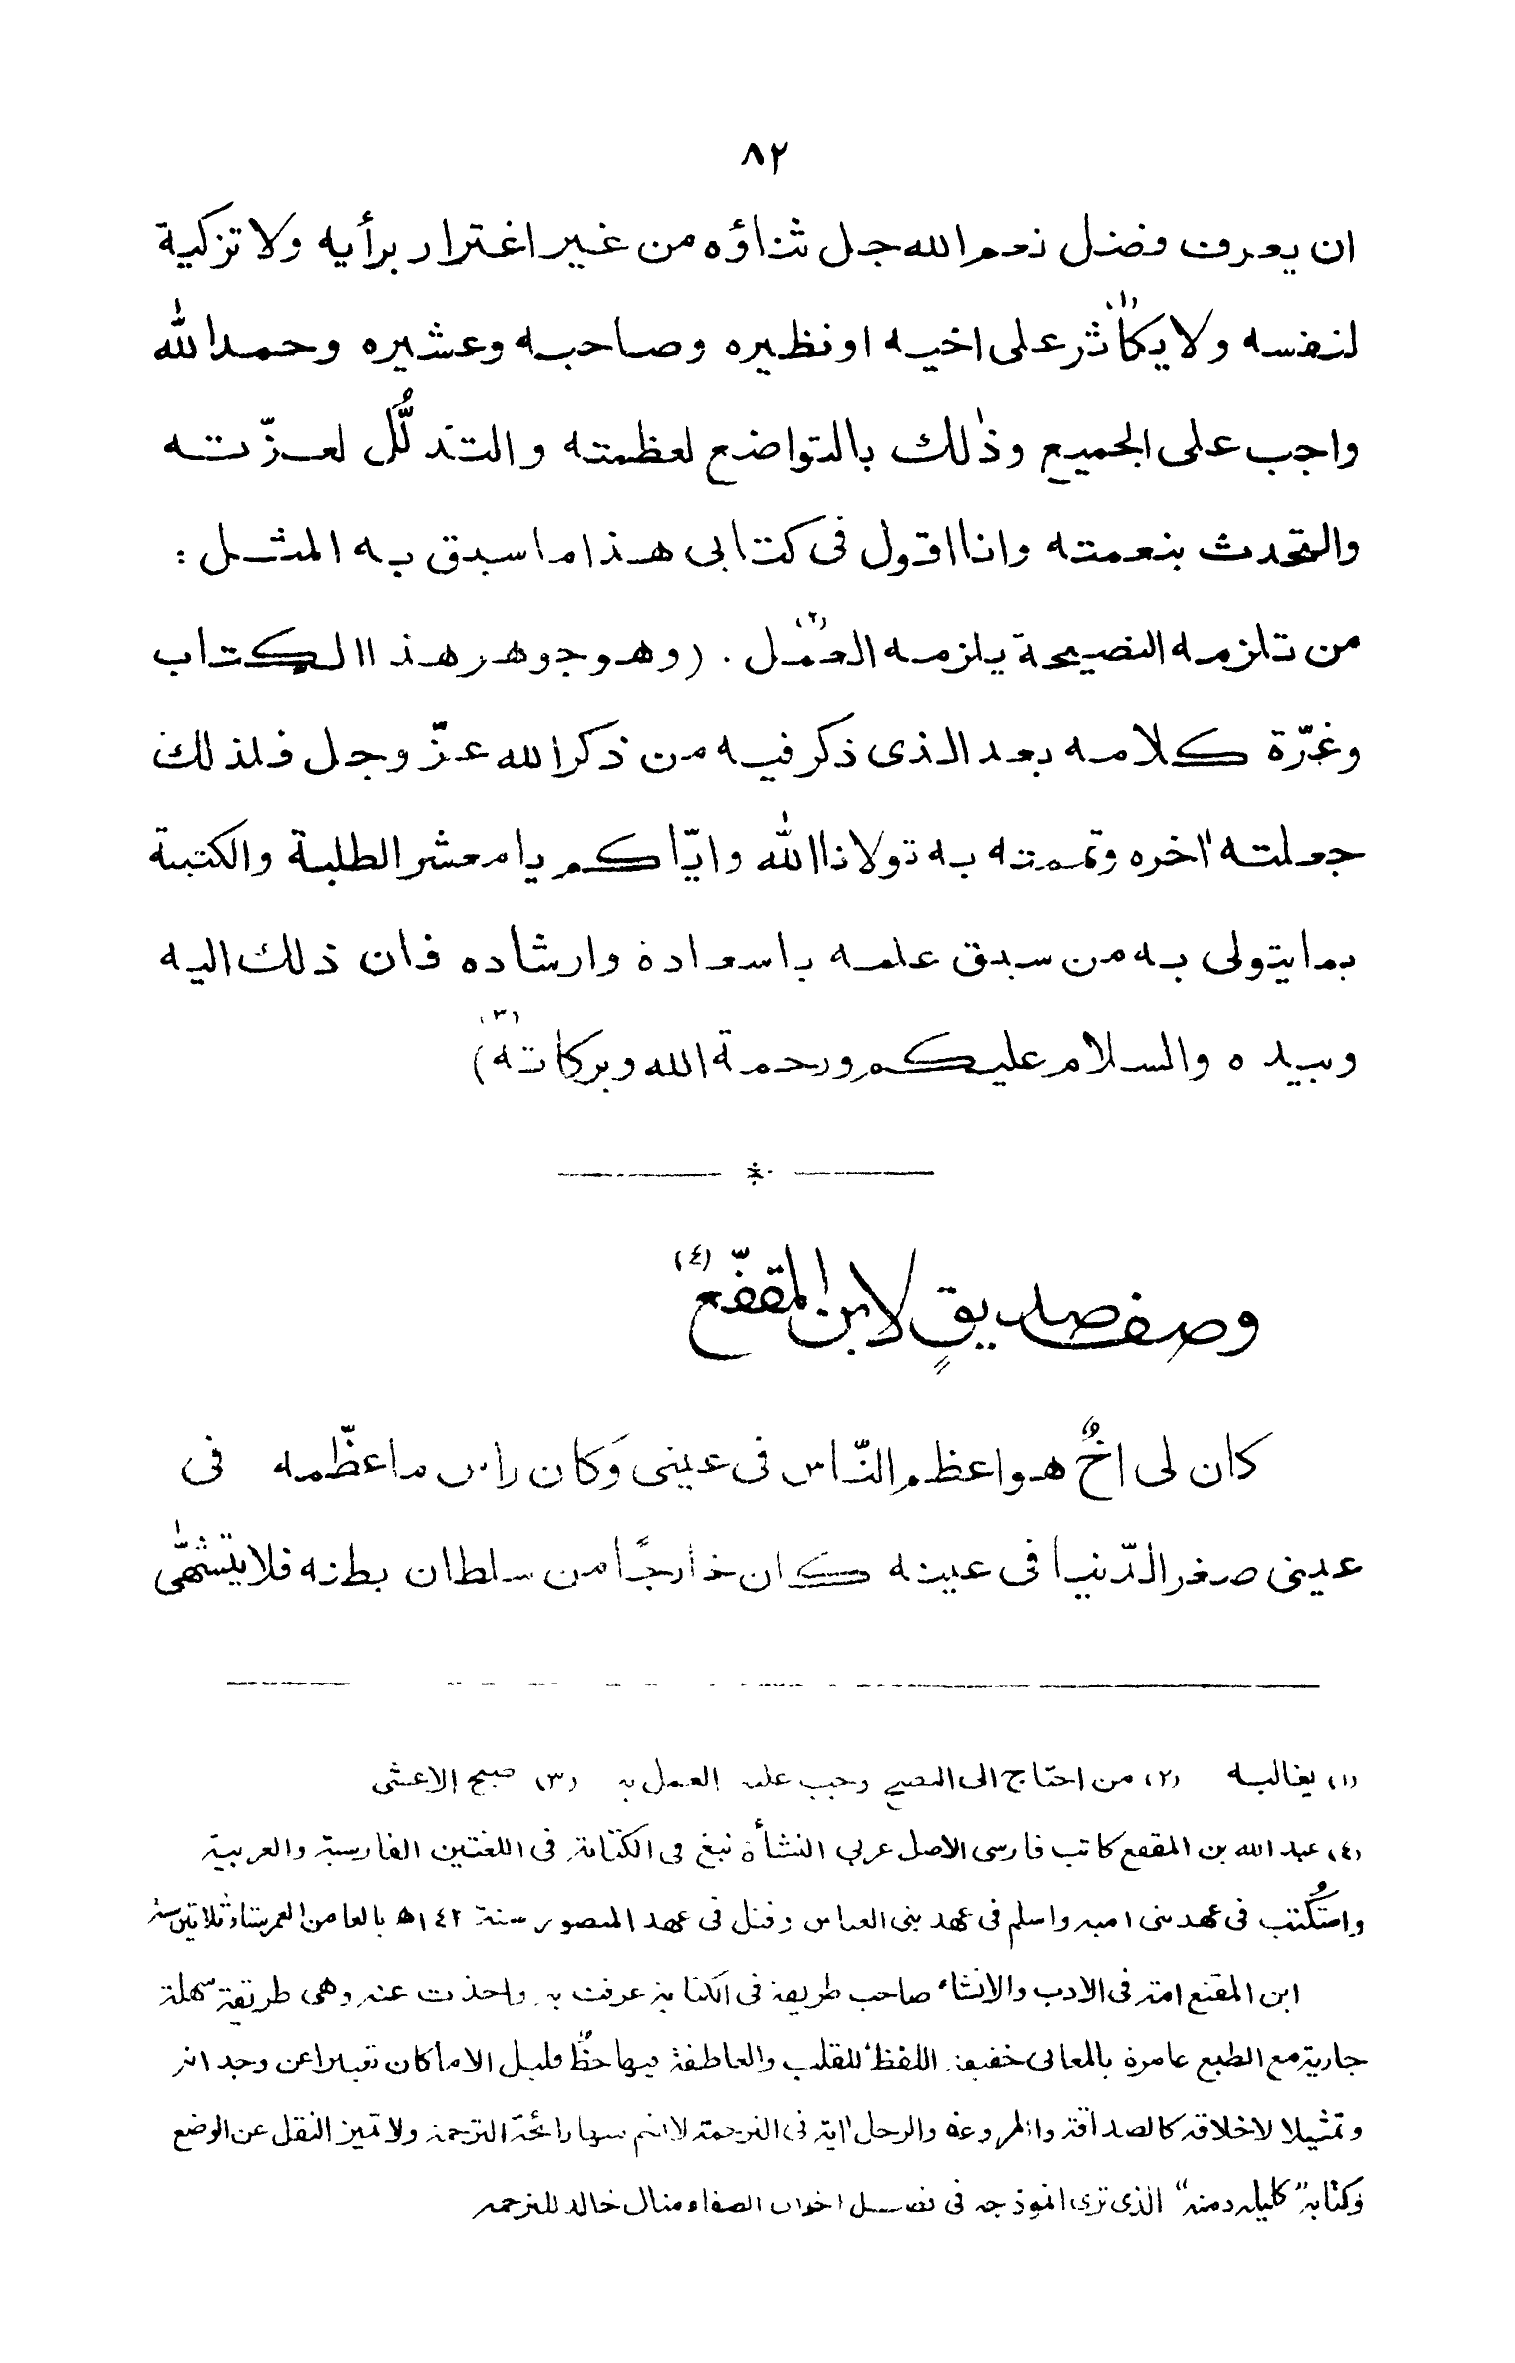 ٨٢
ان يعرف فضل نعم الله جل ثناؤه من غير اغترار برأيه ولا تزكية
لنفسه ولا يكاثر(١) على اخيه او نظيره وصاحبه وعشيره وحمد الله
واجب على الجميع وذٰلك بالتواضع لعظمته والتذلُّل لعزّته
والتحدث بنعمته وانا اقول فى كتابى هذا ما سبق به المثل :
من تلزمه النصيحة يلزمه العمل(٢) . (وهو جوهر هذا الكتاب
وغرّة كلامه بعد الذى ذكر فيه من ذكر الله عزّ وجل فلذلك
جعلته اٰخره وتممته به تولانا الله وايّاكم يا معشر الطلبة والكتبة
بما يتولى به من سبق علمه باسعاده وارشاده فان ذلك اليه
وبيده والسلام عليكم ورحمة الله وبركاته(٣))
وصف صديقٍ لابن المقفّع(٤)
كان لى اخٌ هو اعظم النّاس فى عينى وَكان راس ما عظّمه فى
عينى صغر الدّنيا فى عينه كان خارجًا من سلطان بطنه فلا يتشهّٰى
(١) يغالبه (٢) من احتاج الى النصح وجب عليه العمل به (٣) صبح الاعشى
(٤) عبد الله بن المقفع كاتب فارسى الاصل عربى النشأة نبغ فى الكتابة فى اللغتين الفارسية والعربية
واستُكتب فى عهد بنى اميه واسلم فى عهد بنى العباس وقتل فى عهد المنصور سنة ١٤٢ھ بالغا من العمر ستا وثلاثين سنة
ابن المقفع امة فى الادب والانشاء صاحب طريقة فى الكتابة عرفت به واخذت عنه وهى طريقة سهلة
جارية مع الطبع عامرة بالمعانى خفيفة اللفظ للقلب والعاطفة فيها حظٌ قليل الا ما كان تعبيرا عن وجدانه
وتمثيلا لاخلاقه كالصداقة والمروءة والرجل اٰية فى الترجمة لا تشم فيها رائحة الترجمة ولا تميز النقل عن الوضع
وكتابه "كليله دمنه" الذى ترى انموذجه فى فصل اخوان الصفاء مثال خالد للترجمه